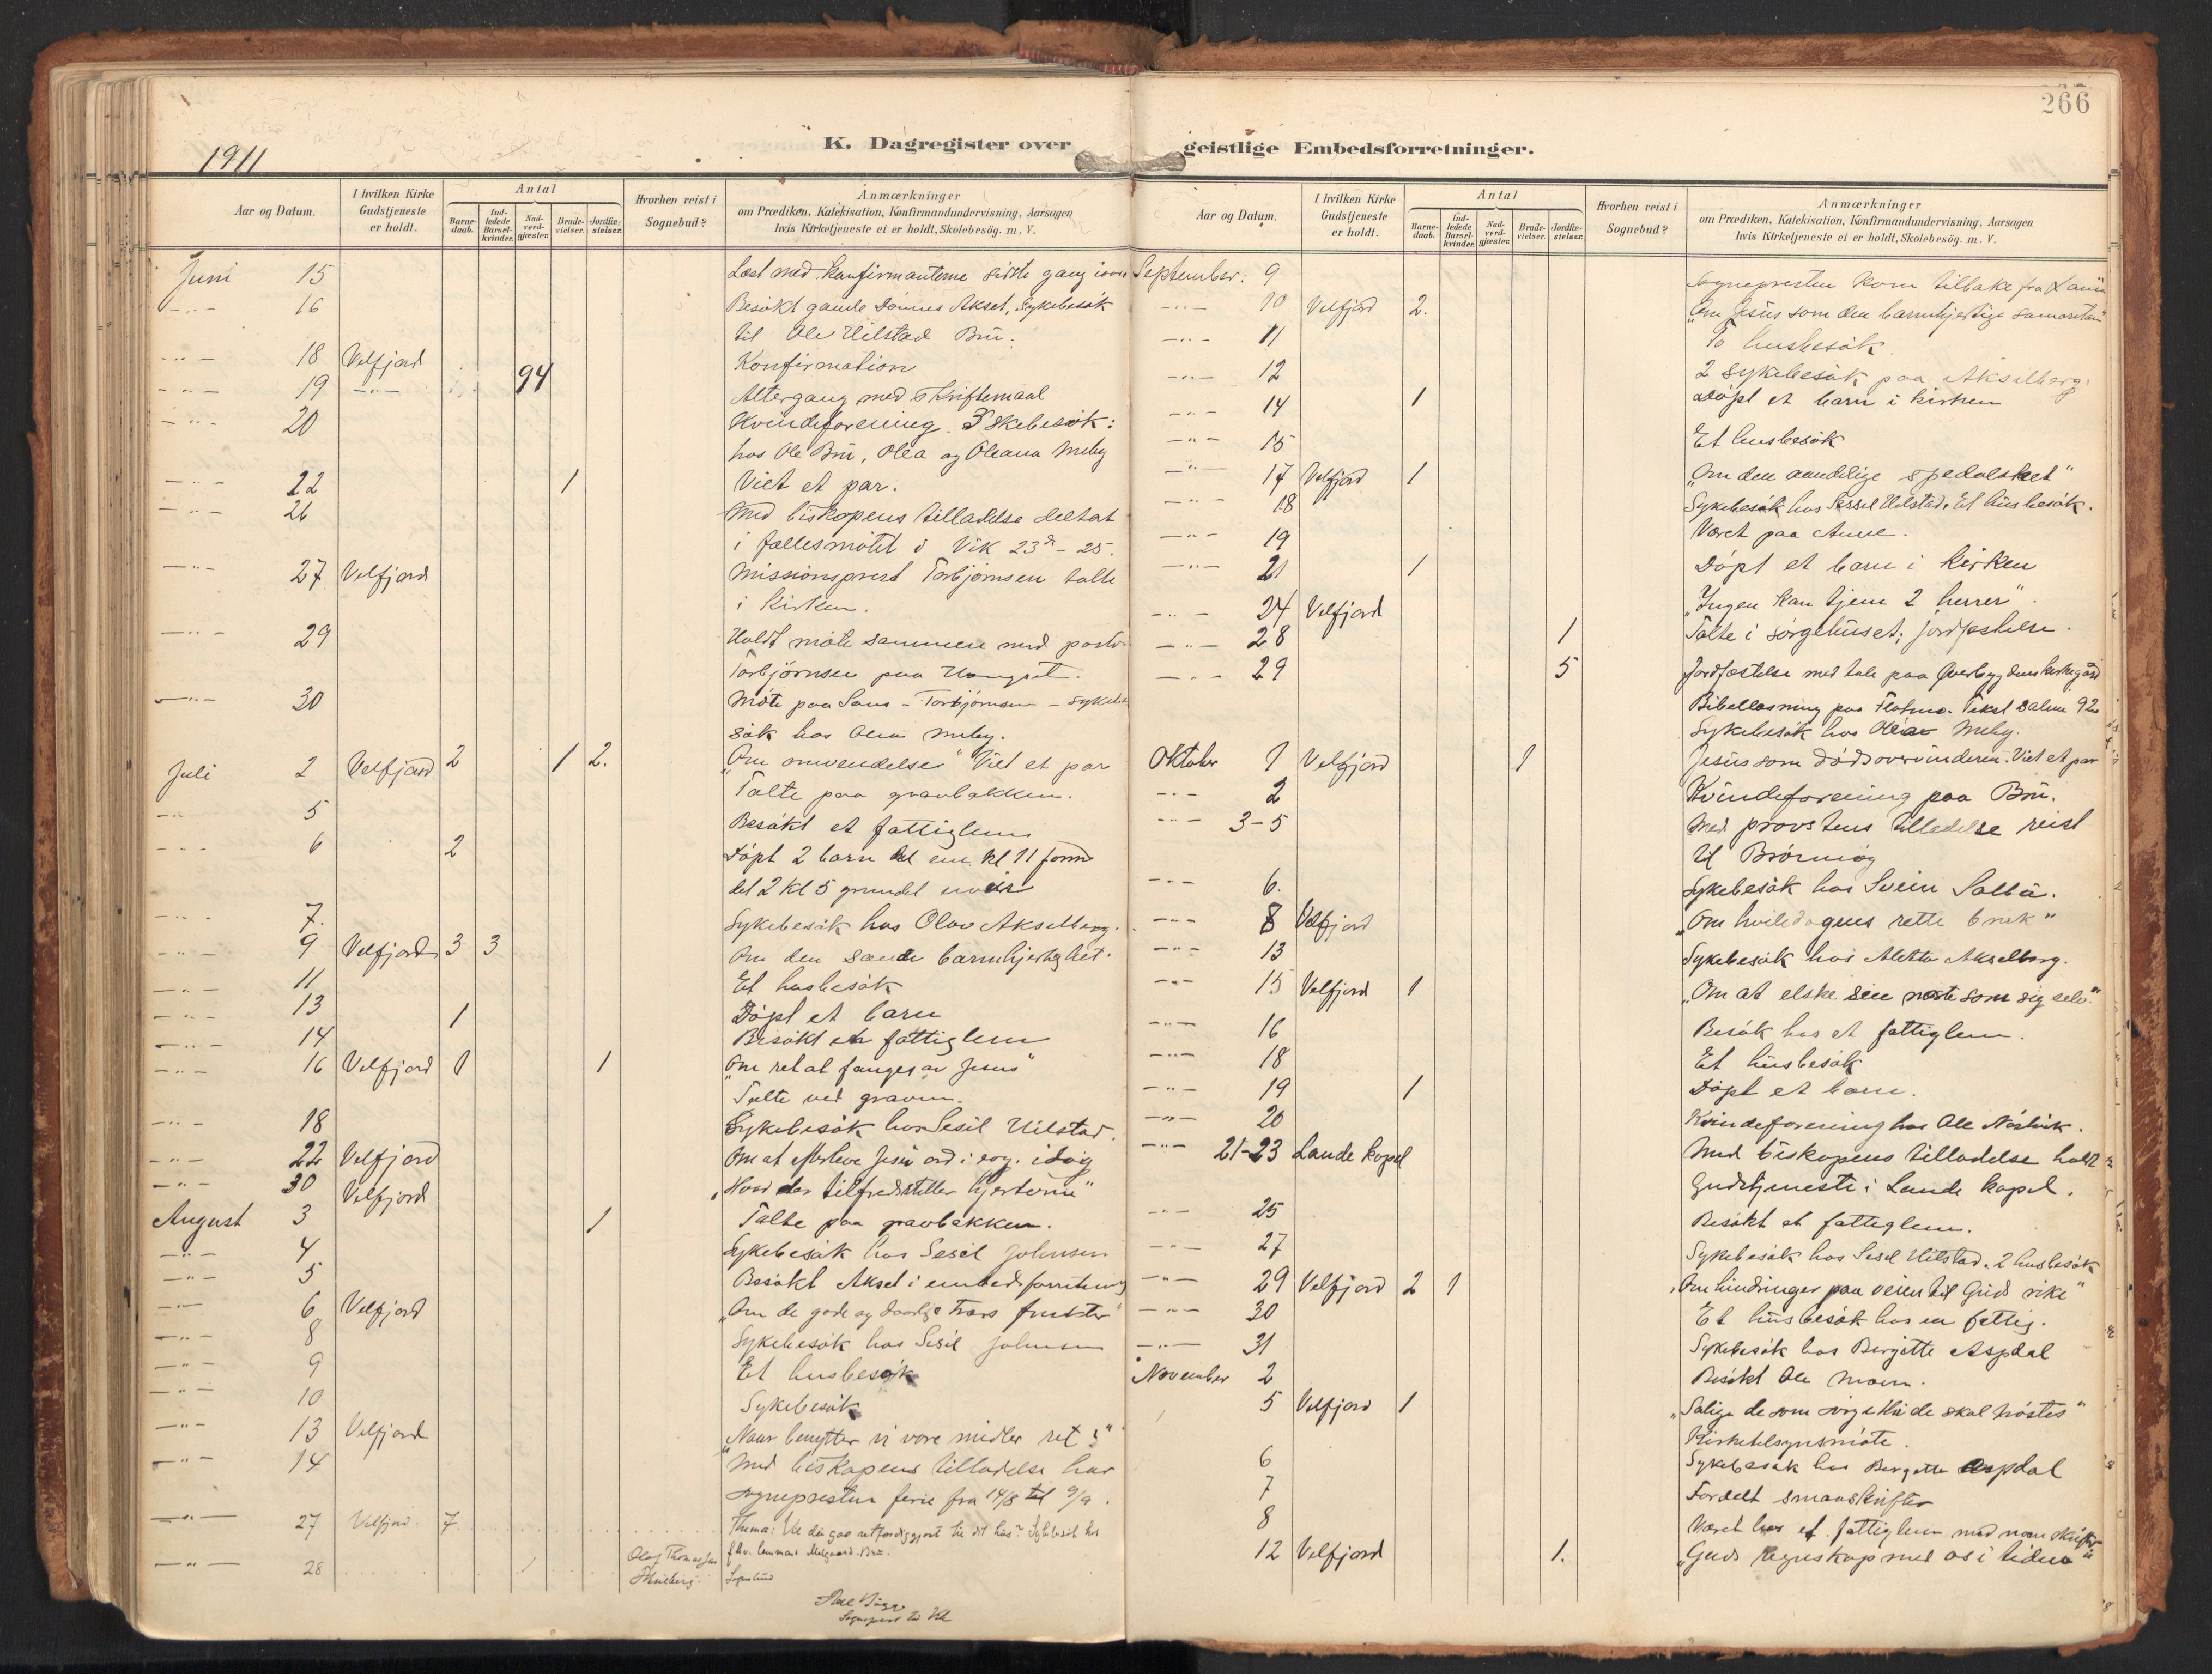 266
K. Dagregister over geistlige Embedsforretninger.
1911
Aar og Datum. I hvilken Kirke Gudstjeneste er holdt. Antal Barnedaab. Indledede Barselkvinder. Nadverdgjæster. Brudevielser. Jordfæstelser. Hvorhen reist i Sognebud? Anmærkninger om Prædiken, Katekisation, Konfirmandundervisning, Aarsagen hvis Kirketjeneste ei er holdt, Skolebesög. m. V.
Juni 15 Læst med konfirmanterne sidste gang
16 Besökt gamle Aksel, Sykebesök
til Ole Hilstad Bru.
18 Velfjord Konfirmation
19 94 Altergang med skriftemaal
20 Kvindeforening. 3 skebesök:
hos Ole Bru, Olea og Oleana Meby
22 1 Viet et par.
26 Med biskopens tilladelse deltat
i fællesmötet i Vik 23de - 25.
27 Velfjord Missionsprest Torbjörnsen talte
i kirken.
29 Holdt möte sammen med pastor
Torbjörnsen paa
30 Möte paa Saus - Torbjörnsen - sykebe
sök hos Olea Meby.
Juli 2 Velfjord 2 1 2. "Om omvendelse" Viet et par
Talte paa gravbakken.
5 Besökt et fattiglem
6 2 Döpt 2 barn det ene kl 11 form
det 2 kl 5 grundet
7. Sykebesök hos Olav Akselberg.
9 Velfjord 3 3 Om den sande barmhjertighet.
11 Et husbesök
13 1 Döpt et barn
14 Besökt et fattiglem
16 Velfjord 1 1 "Om ret at fanges av Jesus"
Talte ved graven.
18 Sykebesök hos Sesil Hilstad.
22 Velfjord Om at efterleve Jesu ord i idag
30 Velfjord "Hvad der tilfredsstiller hjerterne"
August 3 1 Talte paa gravbakken.
4 Sykebesök hos Sesil Johnsen
5 Besökt Aksel i embedsforretning
6 Velfjord "Om de gode og daarlige træs frukter"
8 Sykebesök hos Sesil Johnsen
9 Et husbesök
10 Sykebesök
13 Velfjord "Naar benytter vi vore midler ret?"
14 Med biskopens tilladelse har
sogneprestur ferie fra 14/8 til 9/9.
27 Velfjord. 7. Thema: gaa retfærdiggjort til dit hus? Sykebesök hos
28 Olaf Thomassen Akselberg. Sognebud
Aar og Datum. I hvilken Kirke Gudstjeneste er holdt. Antal Barnedaab. Indledede Barselkvinder. Nadverdgjæster. Brudevielser. Jordfæstelser. Hvorhen reist i Sognebud? Anmærkninger om Prædiken, Katekisation, Konfirmandundervisning, Aarsagen hvis Kirketjeneste ei er holdt, Skolebesög. m. V.
September. 9 Sognepresten kom tilbake fra
10 Velfjord 2. "Om Jesus som den barmhjertige samaritan"
11 To husbesök.
12 2 sykebesök paa Akselberg.
14 1 Döpt et barn i kirken
15 Et husbesök
17 Velfjord 1 "Om den aandelige spedalskhet"
18 Sykebesök hos Sessel Hilstad. Et husbesök.
19 Været paa Aune.
21 1 Döpt et barn i kirken
24 Velfjord "Ingen kan tjene 2 herrer".
28 1 Talte i sörgehuset; jordfestelse.
29 5 Jordfæstelse med tale paa Överbygdens kirkegaard
Bibellæsning paa Tekst Salme 92
Sykebesök hos Olea Meby.
Oktober 1 Velfjord 1 Jesus som dödsovervinderen. Viet et par
2 Kvindeforening paa Bru.
3-5 Med provstens tilladelse reist
til Brönnöy
6. Sykebesök hos Svein Saltbu.
8 Velfjord "Om hviledagens rette bruk"
13 Sykebesök hos Aletta Akselberg.
15 Velfjord 1 "Om at elske sin næste som sig selv."
16 Besök hos et fattiglem.
18 Et husbesök
19 1 Döpt et barn.
20 Kvindeforening hos Ole
21-23 Lande kapel Med biskopens tilladelse holdt
Gudstjeneste i Lande kapel.
25 Besökt et fattiglem.
27 Sykebesök hos Sesil Hilstad. 2 husbesök
29 Velfjord 2 1 "Om hindringer paa veien til Guds rike"
30 Et husbesök hos en fattig.
31 Sykebesök hos Bergitte Aspdal
November 2 Besökt Ole Moen.
5 Velfjord 1 "Salige de som sörge thi de skal tröstes"
Kirketilsynsmöte.
6 Sykebesök hos Bergitte Aspdal
7 Fordelt smaaskrifter
8 Været hos et fattiglem med noen skrifter
12 Velfjord 1. "Guds regnskap med os i tiden"